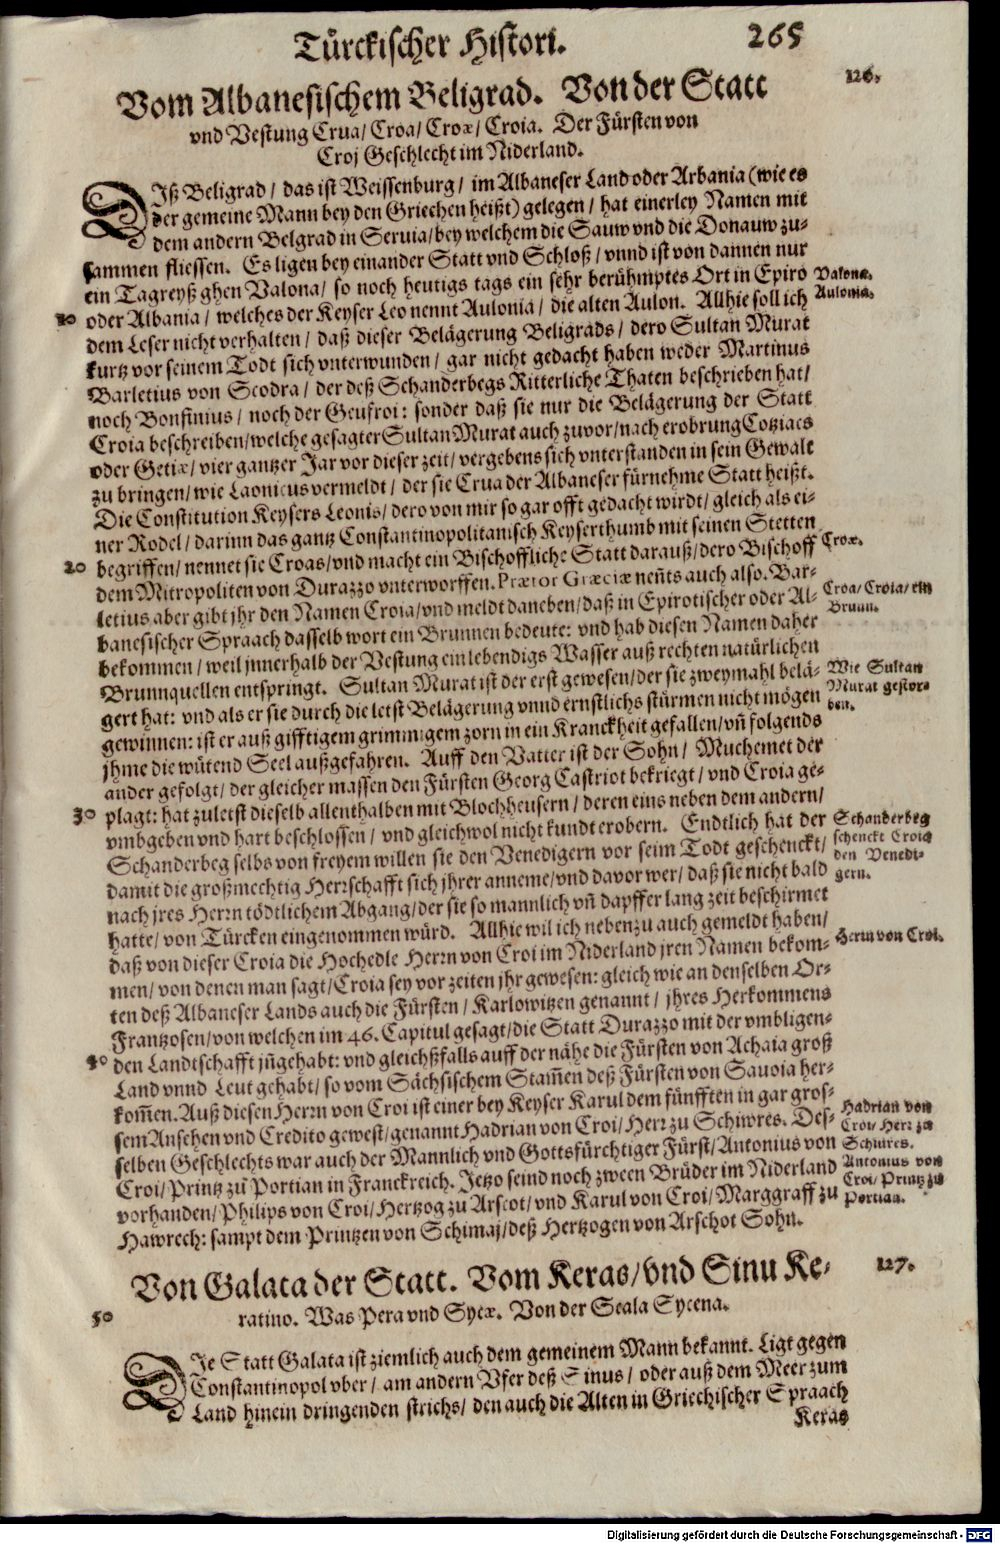 Türckischer Histori. 265
Vom Albanesischem Beligrad. Von der Statt 126.
vnd Vestung Crua/ Croa/ Croæ/ Croia. Der Fürsten von
Croj Geschlecht im Niderland.
DIß Beligrad/ das ist Weissenburg/ im Albaneser Land oder Arbania (wie es
der gemeine Mann bey den Griechen heißt) gelegen/ hat einerley Namen mit
dem andern Belgrad in Seruia/ bey welchem die Sauw vnd die Donauw zu-
sammen fliessen. Es ligen bey einander Statt vnd Schloß/ vnnd ist von dannen nur
ein Tagreyß ghen Valona/ so noch heutigs tags ein sehr berühmptes Ort in Epiro
Valona.
Aulonia.
10 oder Albania/ welches der Keyser Leo nennt Aulonia/ die alten Aulon. Allhie soll ich
dem Leser nicht verhalten/ daß dieser Belägerung Beligrads/ dero Sultan Murat
kurtz vor seinem Todt sich vnterwunden/ gar nicht gedacht haben weder Martinus
Barletius von Scodra/ der deß Schanderbegs Ritterliche Thaten beschrieben hat/
noch Bonfinius/ noch der Geufroi: sonder daß sie nur die Belägerung der Statt
Croia beschreiben/ welche gesagter Sultan Murat auch zuvor/ nach erobrung Cotziacs
oder Getiæ/ vier gantzer Jar vor dieser zeit/ vergebens sich vnterstanden in sein Gewalt
zu bringen/ wie Laonicus vermeldt/ der sie Crua der Albaneser fürnehme Statt heißt.
Die Constitution Keysers Leonis/ dero von mir so gar offt gedacht wirdt/ gleich als ei-
ner Rodel/ darinn das gantz Constantinopolitanisch Keyserthumb mit seinen Stetten
20 begriffen/ nennet sie Croas/ vnd macht ein Bischoffliche Statt darauß/ dero Bischoff
Croæ.
dem Mitropoliten von Durazzo vnterworffen. Prætor Græciæ neñts auch also. Bar-
letius aber gibt jhr den Namen Croia/ vnd meldt daneben/ daß in Epirotischer oder Al-
Croa/ Croia/ ein
Brunn.
banesischer Spraach dasselb wort ein Brunnen bedeute: vnd hab diesen Namen daher
bekommen/ weil jnnerhalb der Vestung ein lebendigs Wasser auß rechten natürlichen
Brunnquellen entspringt. Sultan Murat ist der erst gewesen/ der sie zweymahl belä-
Wie Sultan
Murat gestor-
ben.
gert hat: vnd als er sie durch die letst Belägerung vnnd ernstlichs stürmen nicht mögen
gewinnen: ist er auß gifftigem grimmigem zorn in ein Kranckheit gefallen/ vñ folgends
jhme die wütend Seel außgefahren. Auff den Vatter ist der Sohn/ Muchemet der
ander gefolgt/ der gleicher massen den Fürsten Georg Castriot bekriegt/ vnd Croia ge-
30 plagt: hat zuletst dieselb allenthalben mit Blochheusern/ deren eins neben dem andern/
vmbgeben vnd hart beschlossen/ vnd gleichwol nicht kundt erobern. Endtlich hat der
Schanderbeg
schenckt Croia
den Venedi-
gern.
Schanderbeg selbs von freyem willen sie den Venedigern vor seim Todt geschenckt/
damit die großmechtig Herrschafft sich jhrer anneme/ vnd davor wer/ daß sie nicht bald
nach jres Herrn tödtlichem Abgang/ der sie so mannlich vñ dapffer lang zeit beschirmet
hatte/ von Türcken eingenommen würd. Allhie wil ich nebenzu auch gemeldt haben/
daß von dieser Croia die Hochedle Herrn von Croi im Niderland jren Namen bekom-
Herrn von Croi.
men/ von denen man sagt/ Croia sey vor zeiten jhr gewesen: gleich wie an denselben Or-
ten deß Albaneser Lands auch die Fürsten/ Karlowitzen genannt/ jhres Herkommens
Frantzosen/ von welchen im 46. Capitul gesagt/ die Statt Durazzo mit der vmbligen-
40 den Landtschafft jñgehabt: vnd gleichßfalls auff der nähe die Fürsten von Achaia groß
Land vnnd Leut gehabt/ so vom Sächsischem Stam̃en deß Fürsten von Sauoia her-
kom̃en. Auß diesen Herrn von Croi ist einer bey Keyser Karul dem fünfften in gar gros-
sem Ansehen vnd Credito gewest/ genannt Hadrian von Croi/ Herr zu Schiwres. Des-
Hadrian von
Croi/ Herr zu
Schiures.
selben Geschlechts war auch der Mannlich vnd Gottsfürchtiger Fürst/ Antonius von
Croi/ Printz zu Portian in Franckreich. Jetzo seind noch zween Brüder im Niderland
Antonius von
Croi/ Printz zu
Portian.
vorhanden/ Philips von Croi/ Hertzog zu Arscot/ vnd Karul von Croi/ Marggraff zu
Hawrech: sampt dem Printzen von Schimaj/ deß Hertzogen von Arschot Sohn.
Von Galata der Statt. Vom Keras/ vnd Sinu Ke- 127.
50 ratino. Was Pera vnd Sycæ. Von der Scala Sycena.
DIe Statt Galata ist ziemlich auch dem gemeinem Mann bekannt. Ligt gegen
Constantinopol vber/ am andern Vfer deß Sinus/ oder auß dem Meer zum
Land hinein dringenden strichs/ den auch die Alten in Griechischer Spraach
Keras
Digitalisierung gefördert durch die Deutsche Forschungsgemeinschaft - DFG